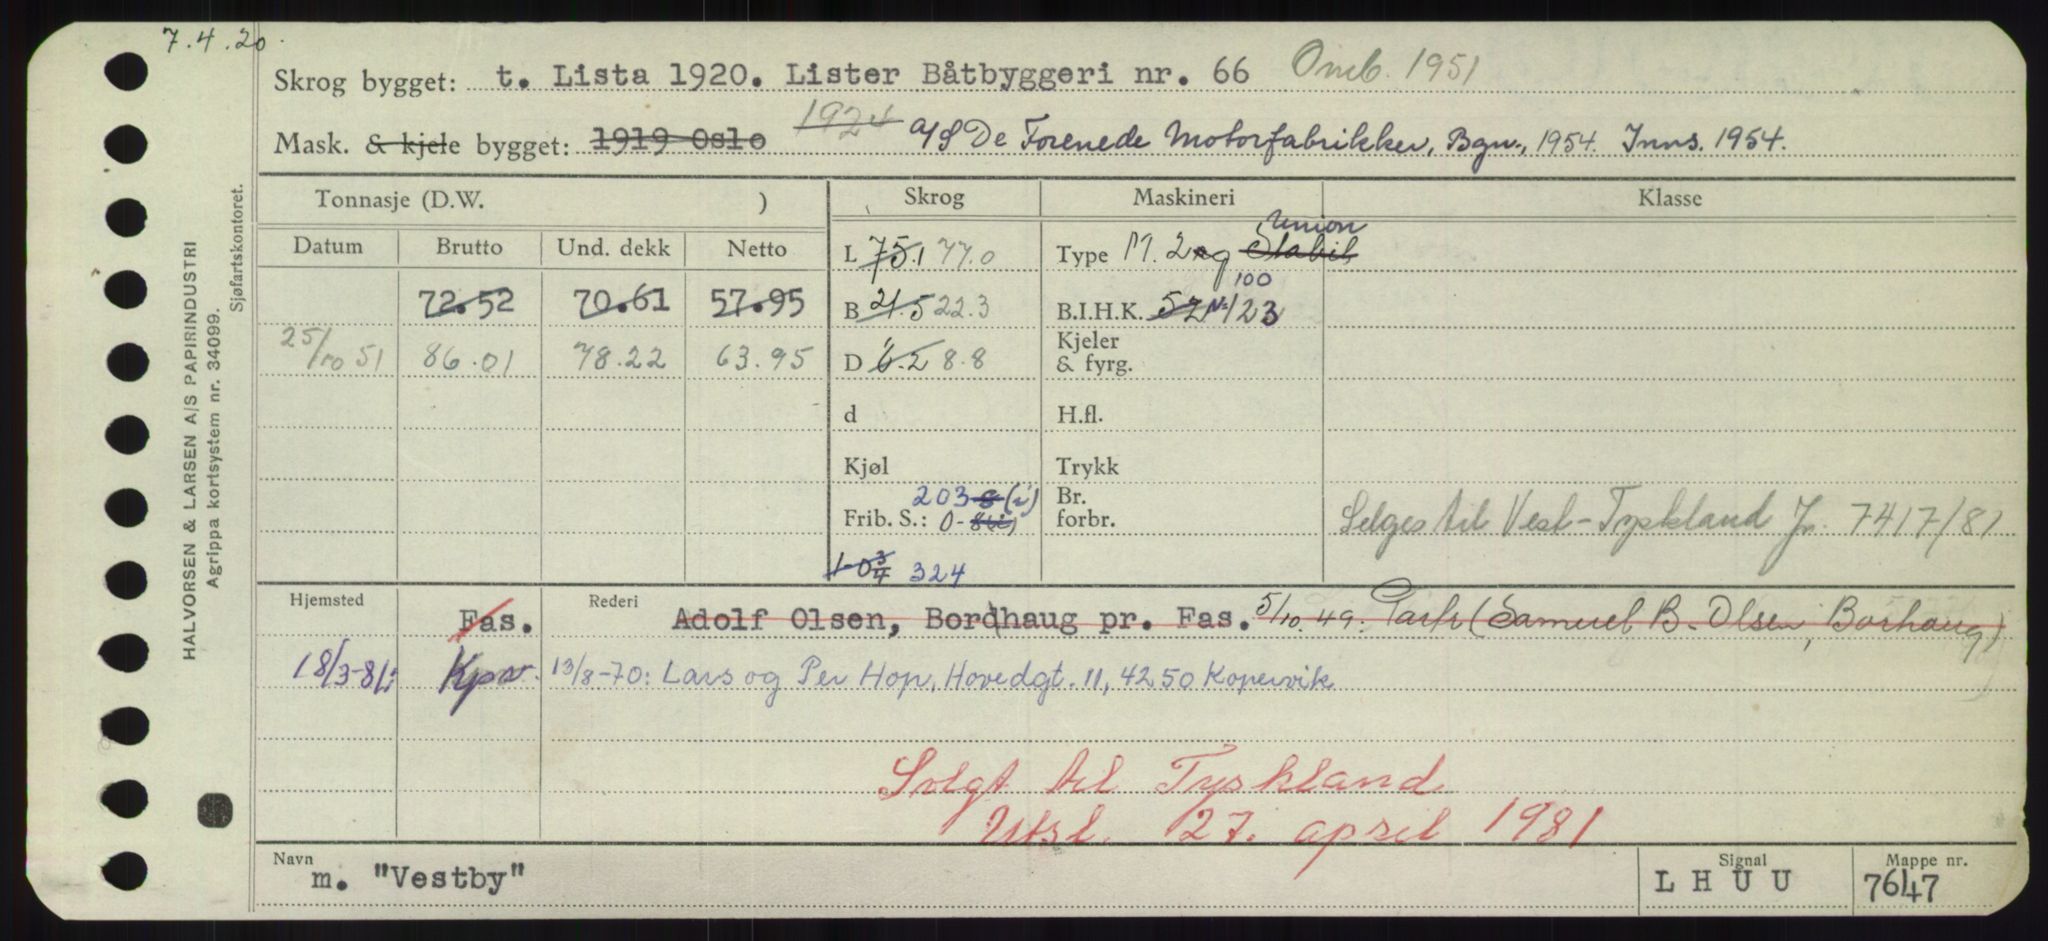 7.4.20.
Skrog bygget: t. Lista 1920. Lister Båtbyggeri nr. 66 Omb. 1951
Mask. & kjele bygget: 1919 Oslo 1924 A/S De Forenede Motorfabrikker, Bgn., 1954. Inns. 1954.
Tonnasje (D.W. ) Skrog Maskineri Klasse
Datum Brutto Und. dekk Netto
L 75.1 77.0 Type M. 2 Stabil Union
72.52 70.61 57.95 B 21.5 22.3 B.I.H.K. 52 100 N:123
25/10 51 86.01 78.22 63.95 D 6.2 8.8 Kjeler & fyrg.
d H.fl.
Kjøl Trykk
Frib. S.: 203 (i) Br. forbr.
0-
1-0 3/4 324
Selges til Vest-Tyskland Jr. 7417/81
Hjemsted Fas. Rederi Adolf Olsen, Bordhaug pr. Fas. 5/10.49: Partr (Samuel B. Olsen, Borhaug)
18/3-81: Kpv. 13/8-70: Lars og Per Hop, Hovedgt. 11, 4250 Kopervik
Solgt til Tyskland
Utsl. 27. april 1981
Navn m. "Vestby" Signal LHUU Mappe nr. 7647
HALVORSEN & LARSEN A/S PAPIRINDUSTRI
Agrippa kortsystem nr. 34099.
Sjøfartskontoret.